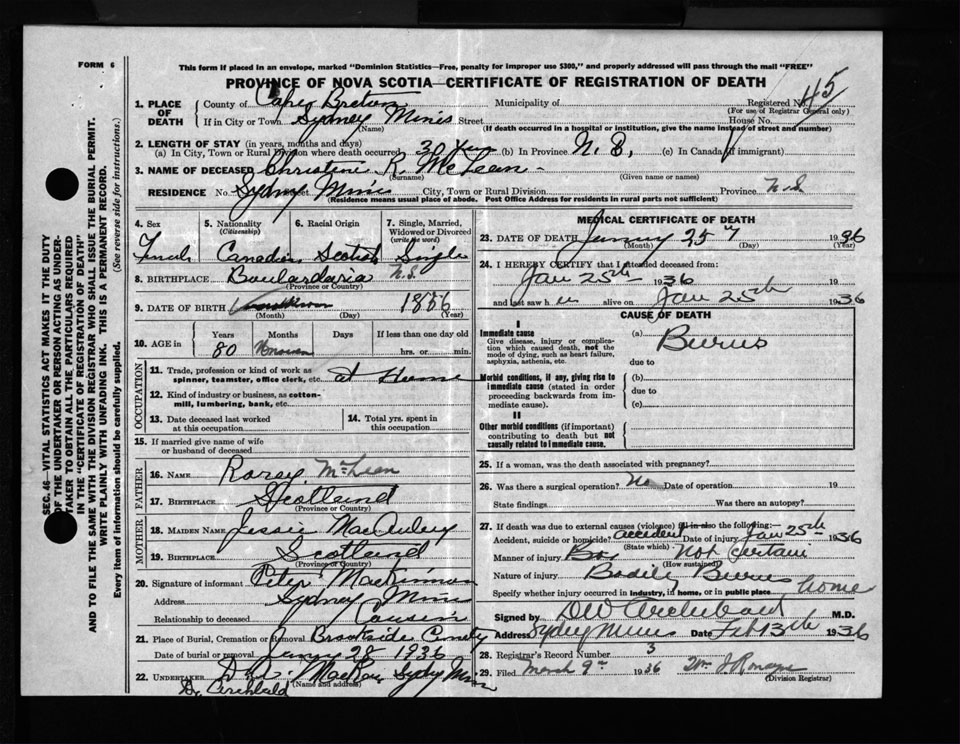 FORM 6
This form if placed in an envelope, marked "Dominion Statistics—Free, penalty for improper use $300," and properly addressed will pass through the mail "FREE"
PROVINCE OF NOVA SCOTIA—CERTIFICATE OF REGISTRATION OF DEATH
45
1. PLACE OF DEATH
County of Cape Breton Municipality of Registered No.
(For use of Registrar General only)
If in City or Town Sydney Mines Street House No.
(Name) (If death occurred in a hospital or institution, give the name instead of street and number)
2. LENGTH OF STAY (in years, months and days)
(a) In City, Town or Rural Division where death occurred 30 yrs (b) In Province N. S. (c) In Canada (if immigrant)
3. NAME OF DECEASED Christine R. McLean
(Surname) (Given name or names)
RESIDENCE No. Street Sydney Mines City, Town or Rural Division Province N.S.
(Residence means usual place of abode. Post Office Address for residents in rural parts not sufficient)
4. Sex
Female
5. Nationality
(Citizenship)
Canadian
6. Racial Origin
Scotish
7. Single, Married, Widowed or Divorced
(write the word)
Single
8. BIRTHPLACE Boulardaria N.S.
(Province or Country)
9. DATE OF BIRTH 1856
(Month) (Day) (Year)
10. AGE in
Years Months Days If less than one day old
80 hrs. or min.
OCCUPATION
11. Trade, profession or kind of work as spinner, teamster, office clerk, etc. at Home
12. Kind of industry or business, as cotton-mill, lumbering, bank, etc.
13. Date deceased last worked at this occupation
14. Total yrs. spent in this occupation
15. If married give name of wife or husband of deceased
FATHER
16. NAME Rorey McLean
17. BIRTHPLACE Scotland
(Province or Country)
MOTHER
18. MAIDEN NAME Jessie MacAuley
19. BIRTHPLACE Scotland
(Province or Country)
20. Signature of informant Peter MacKinnon
Address Sydney Mines
Relationship to deceased Cousin
21. Place of Burial, Cremation or Removal Brookside Cemetry
Date of burial or removal 28 1936
22. UNDERTAKER MacKay Sydney Mines
(Name and address)
Dr. Archibald
MEDICAL CERTIFICATE OF DEATH
23. DATE OF DEATH 25 1936
(Month) (Day) (Year)
24. I HEREBY CERTIFY that I attended deceased from:
Jan 25th 1936 19
and last saw h alive on Jan 25th 1936
CAUSE OF DEATH
I
Immediate cause
Give disease, injury or complication which caused death, not the mode of dying, such as heart failure, asphyxia, asthenia, etc.
(a) Burns
due to
Morbid conditions, if any, giving rise to immediate cause (stated in order proceeding backwards from immediate cause).
(b)
due to
(c)
II
Other morbid conditions (if important) contributing to death but not causally related to immediate cause.
25. If a woman, was the death associated with pregnancy?
26. Was there a surgical operation? No Date of operation 19
State findings Was there an autopsy?
27. If death was due to external causes (violence) fill in also the following:—
Accident, suicide or homicide? accident Date of injury Jan 25th 1936
(State which)
Manner of injury Not Certain
(How sustained)
Nature of injury Bodily Burns
Specify whether injury occurred in industry, in home, or in public place home
Signed by DW Archibald M.D.
Address Sydney Mines Date Feb 13th 1936
28. Registrar's Record Number 3
29. Filed March 9th 1936
(Division Registrar)
SEC. 46—VITAL STATISTICS ACT MAKES IT THE DUTY
OF THE UNDERTAKER OR PERSON ACTING AS UNDER-
TAKER TO OBTAIN ALL THE PARTICULARS REQUIRED
IN THE "CERTIFICATE OF REGISTRATION OF DEATH"
AND TO FILE THE SAME WITH THE DIVISION REGISTRAR WHO SHALL ISSUE THE BURIAL PERMIT.
WRITE PLAINLY WITH UNFADING INK. THIS IS A PERMANENT RECORD.
Every item of information should be carefully supplied. (See reverse side for instructions.)